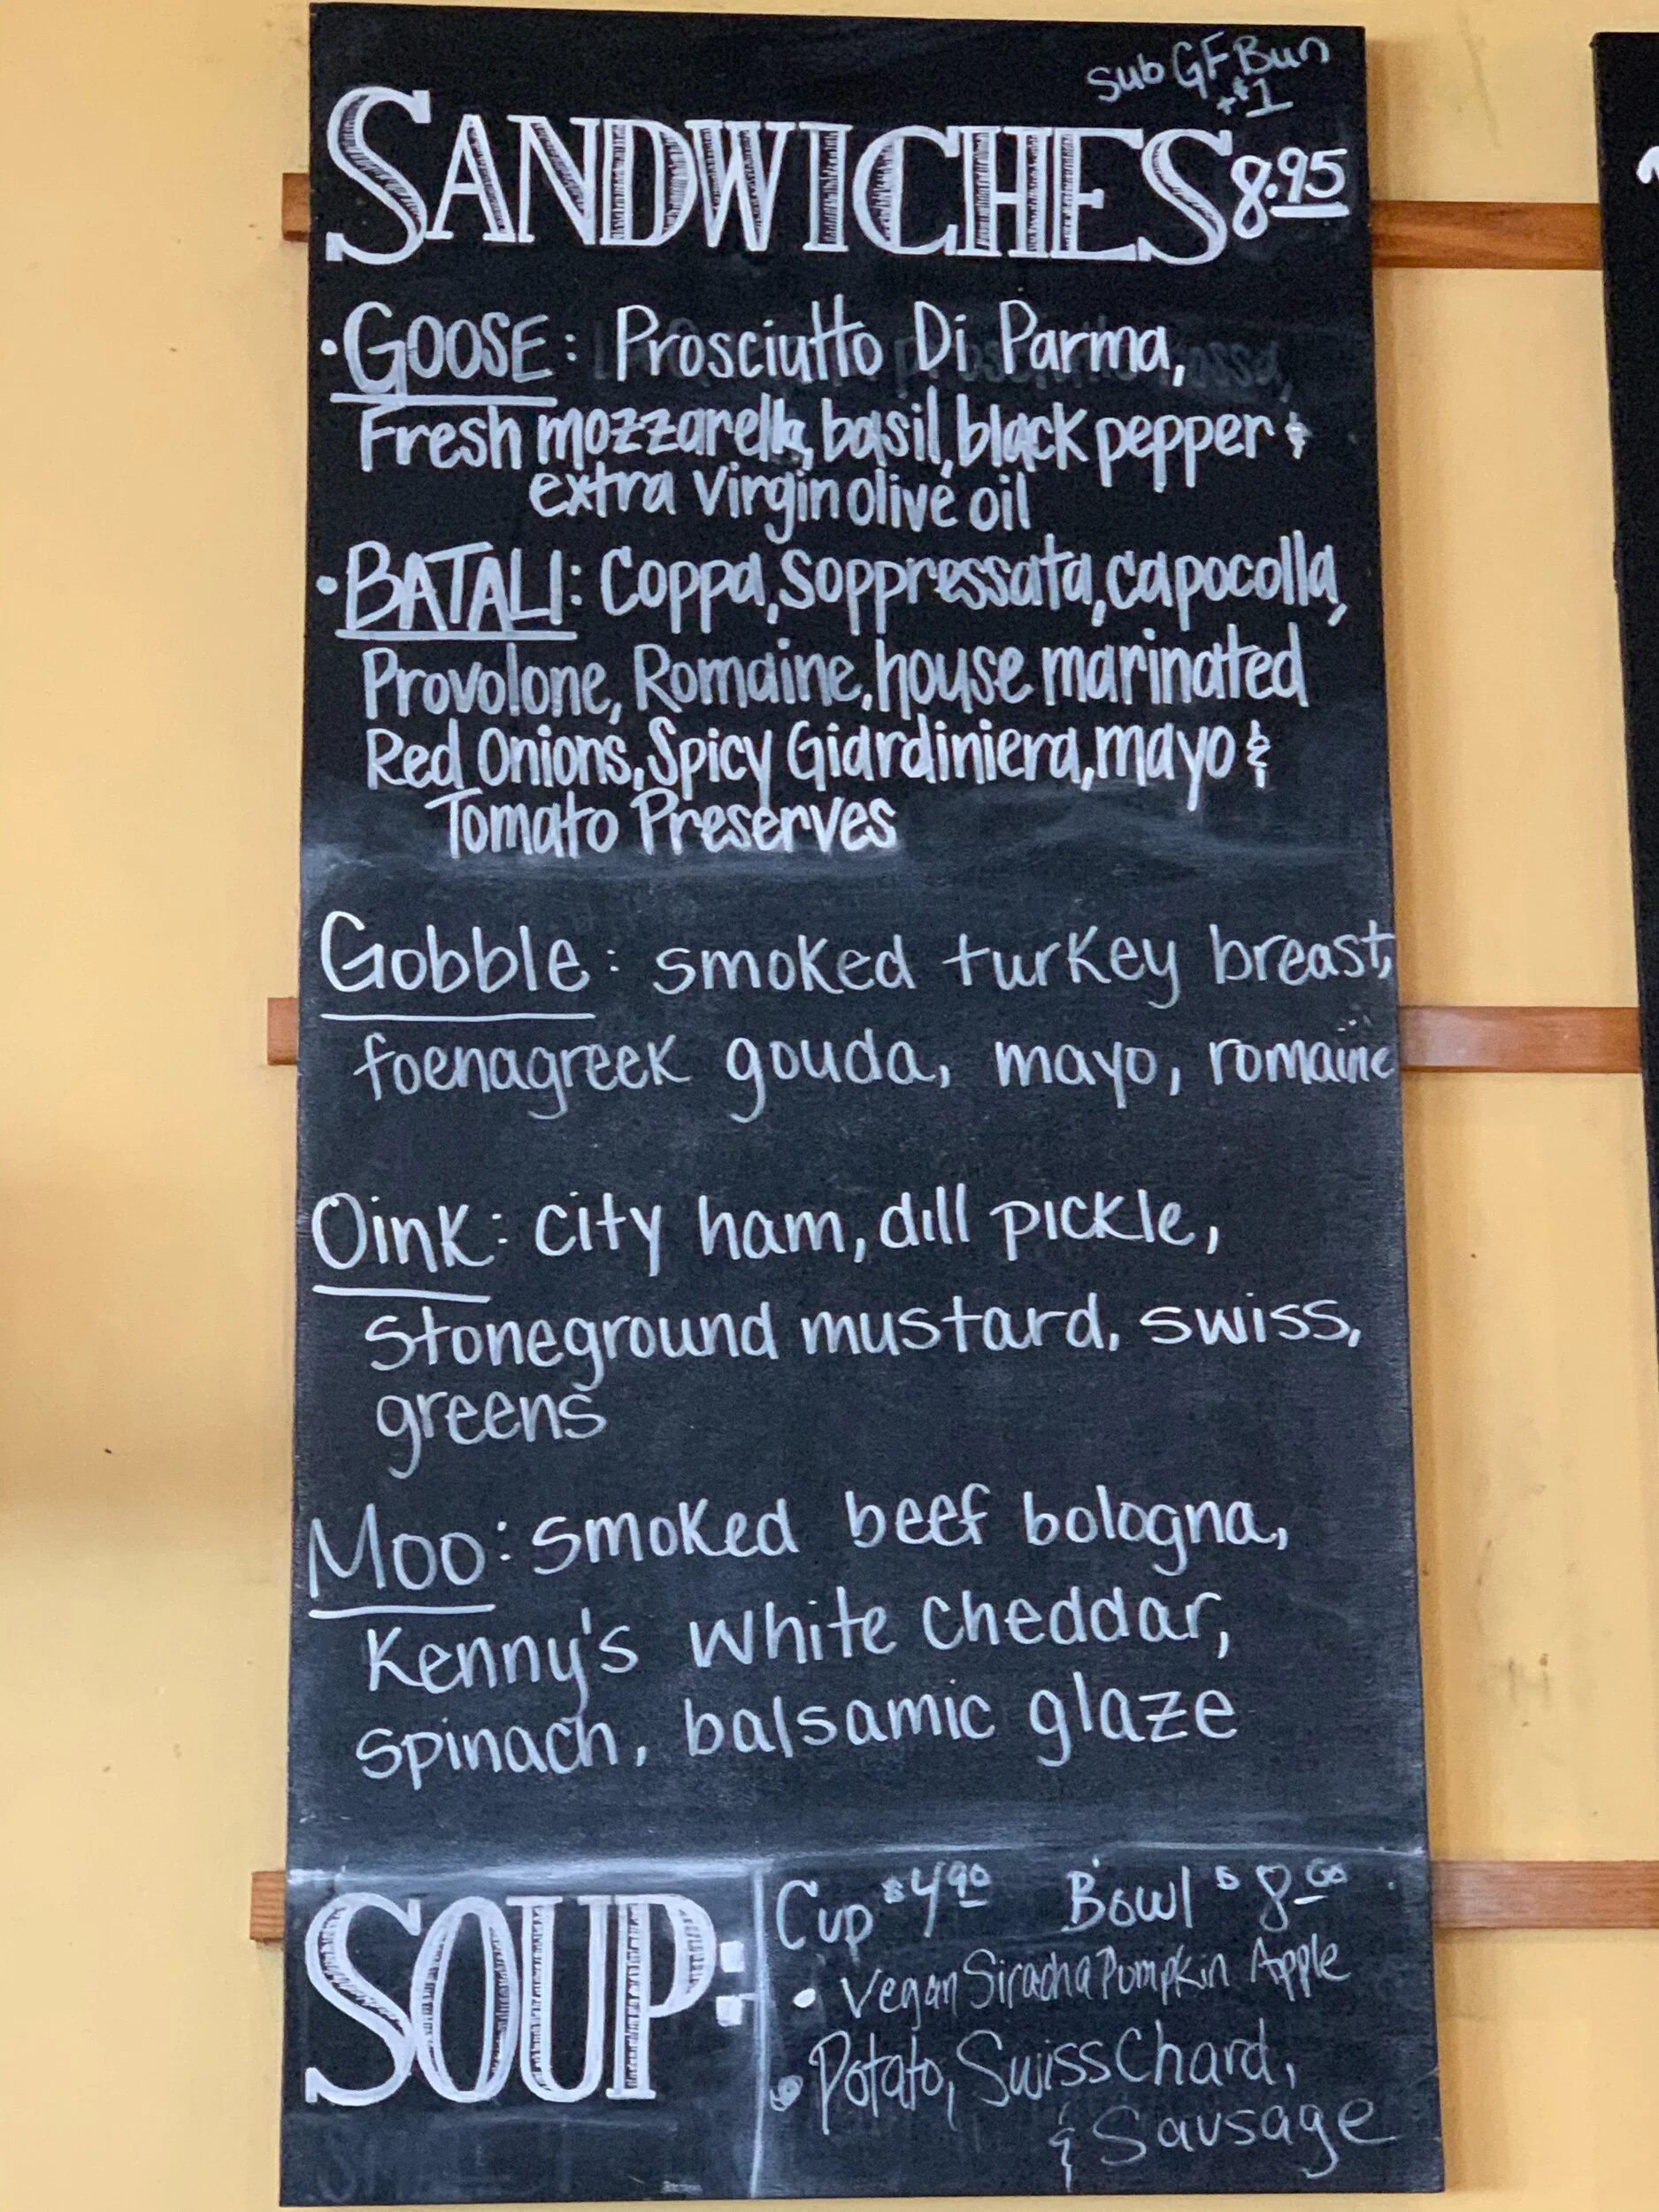 Sub GF Bun
+$1
SANDWICHES 8.95
• GOOSE: Prosciutto Di Parma,
Fresh mozzarella, basil, black pepper &
extra virgin olive oil
• BATALI: Coppa, Soppressata, capocolla,
Provolone, Romaine, house marinated
Red Onions, Spicy Giardiniera, mayo &
Tomato Preserves
Gobble: smoked turkey breast,
foenagreek gouda, mayo, romaine
Oink: city ham, dill pickle,
Stoneground mustard, swiss,
greens
Moo: smoked beef bologna,
Kenny's white cheddar,
spinach, balsamic glaze
SOUP:
Cup $4.90 Bowl $8.00
• Vegan Siracha Pumpkin Apple
• Potato, Swiss Chard,
& Sausage